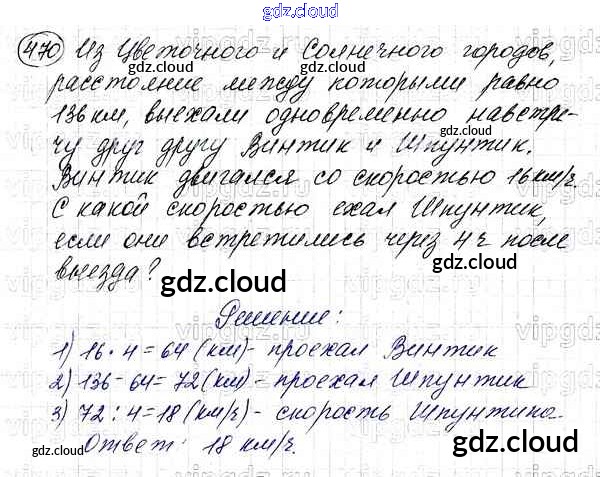 gdz.cloud
470 Из Цветочного и Солнечного городов,
gdz.cloud gdz.cloud
расстояние между которыми равно
136 км, выехали одновременно навстре-
gdz.cloud gdz.cloud
чу друг другу Винтик и Шпунтик.
Винтик двигался со скоростью 16 км/ч.
gdz.cloud gdz.cloud
С какой скоростью ехал Шпунтик,
если они встретились через 4 ч после
gdz.cloud gdz.cloud
выезда?
gdz.cloud gdz.cloud
Решение:
1) 16 · 4 = 64 (км) - проехал Винтик
2) 136 - 64 = 72 (км) - проехал Шпунтик
gdz.cloud gdz.cloud
3) 72 : 4 = 18 (км/ч) - скорость Шпунтика.
Ответ: 18 км/ч.
gdz.cloud gdz.cloud